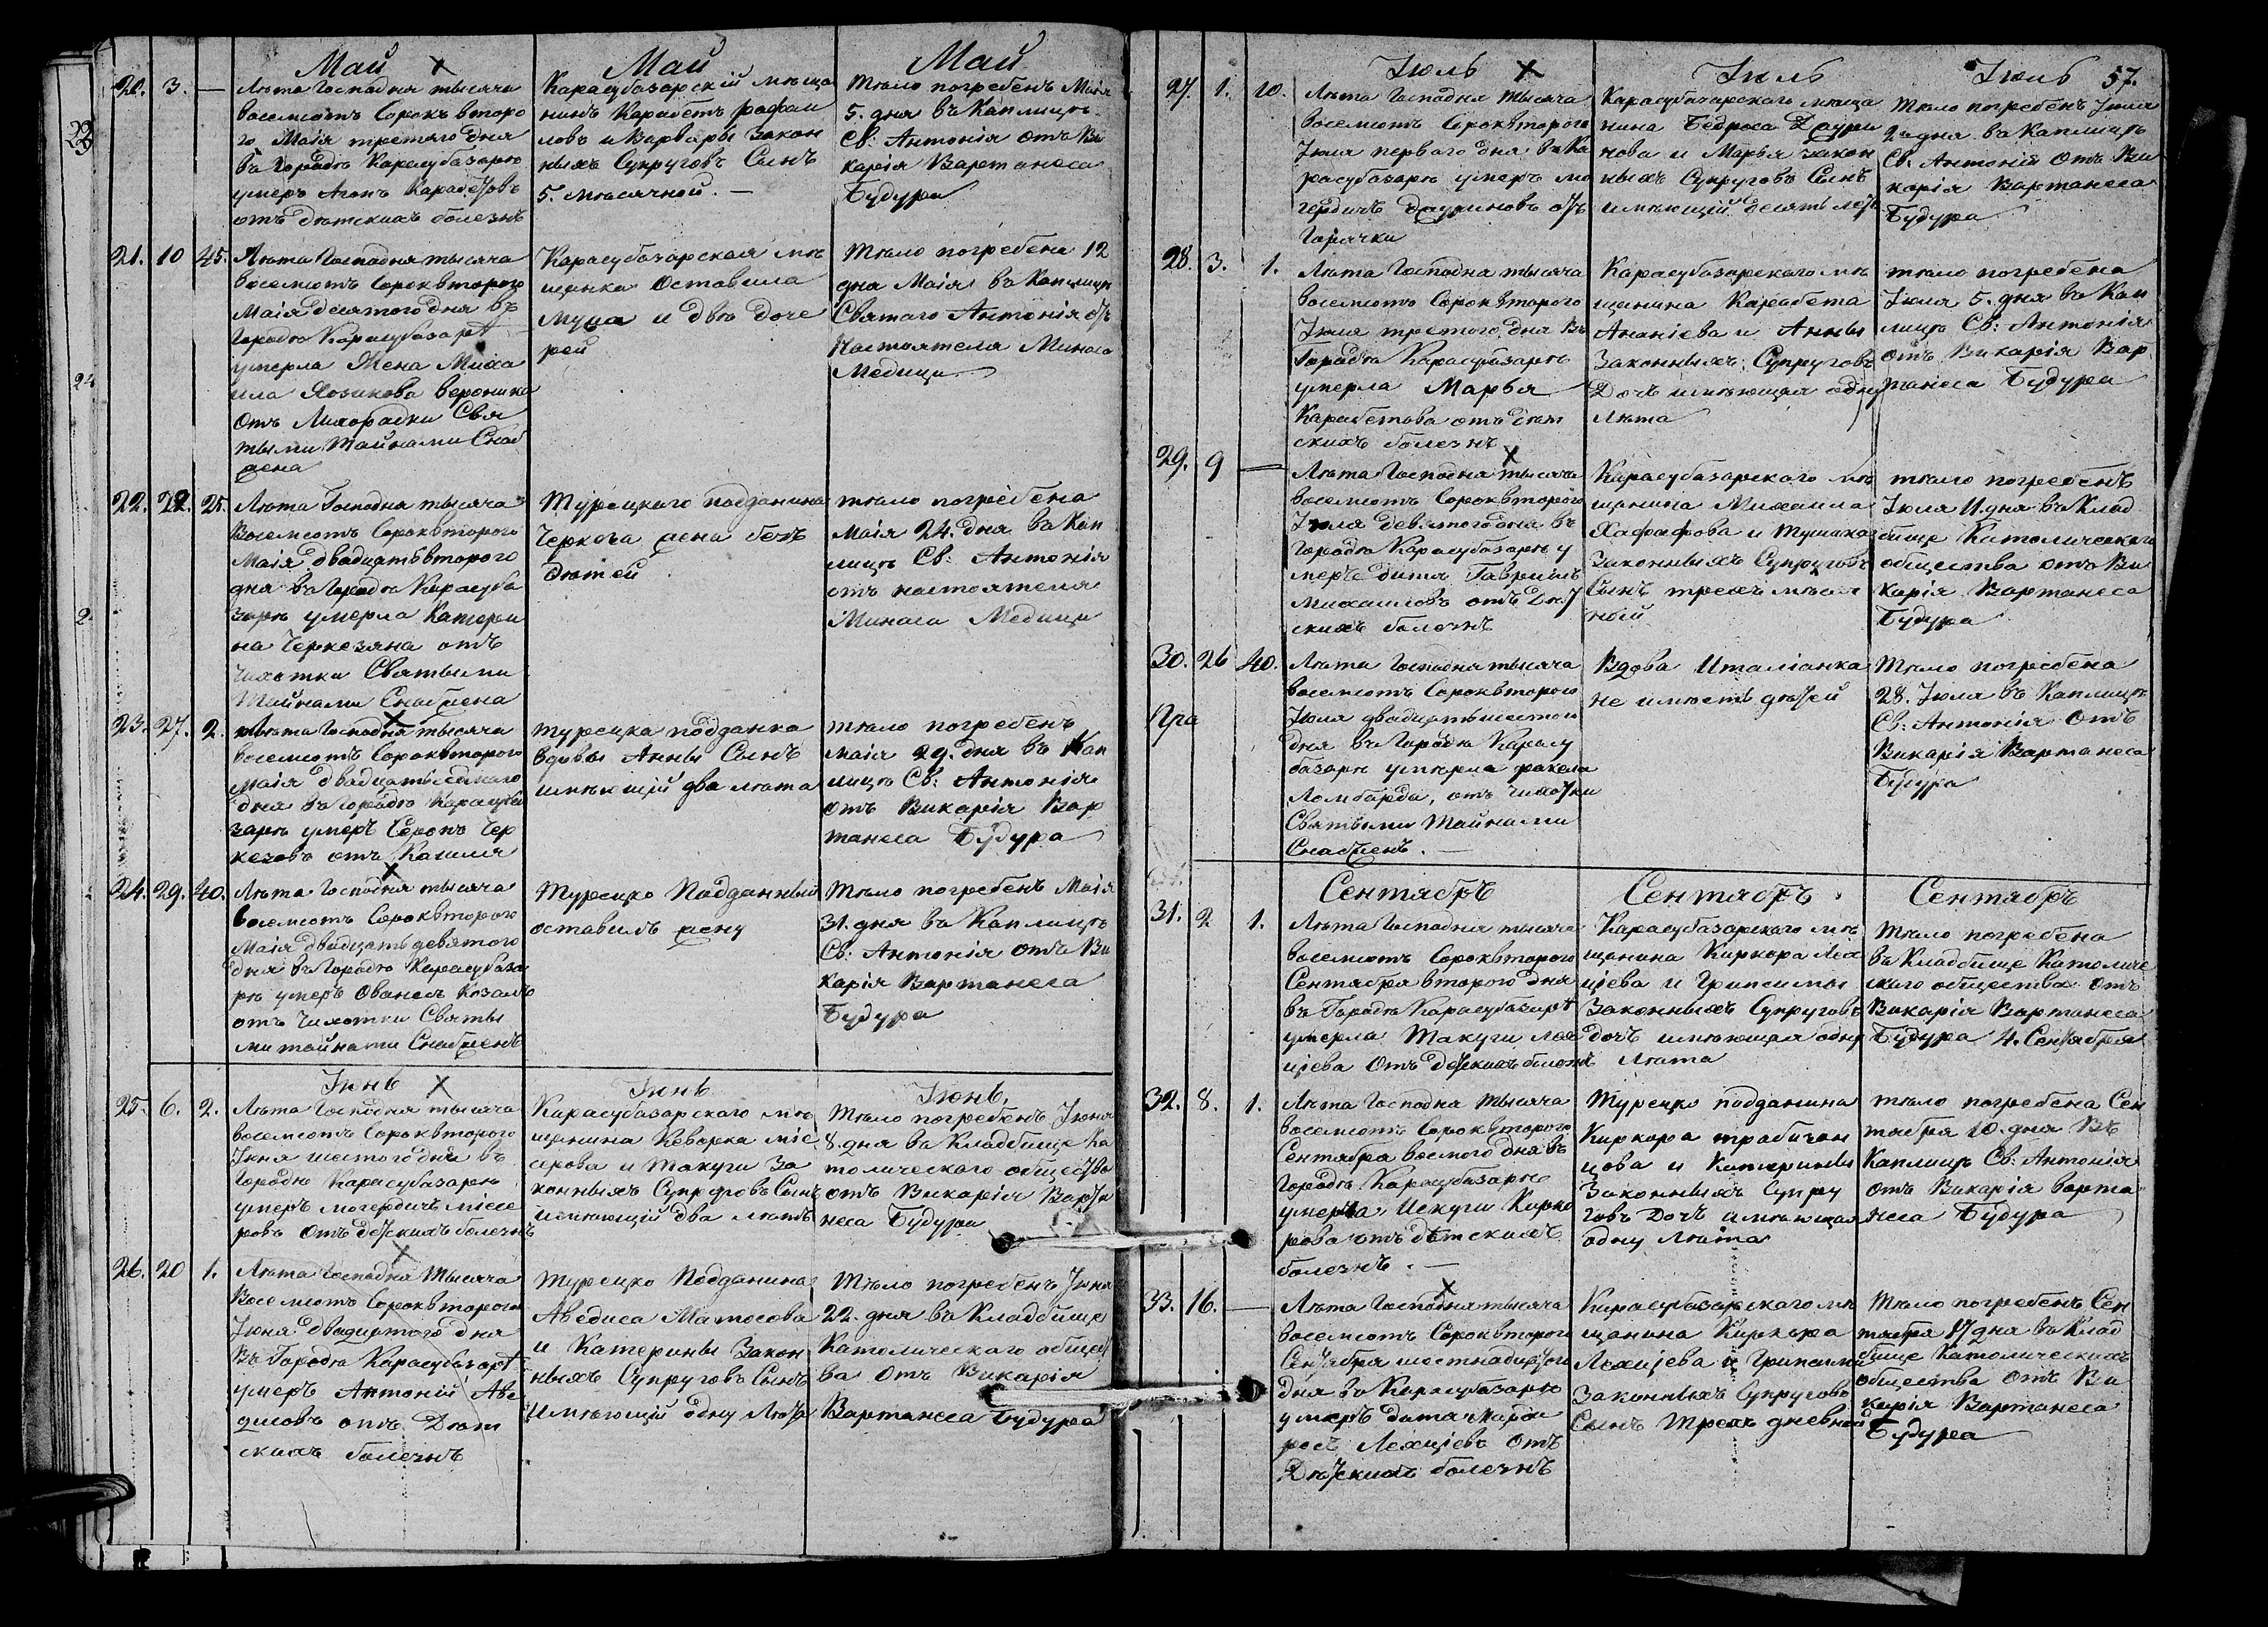 Май
Май
Май
20. 3. —
Лѣта Господня тысяча
восемьсотъ Сорокъ второ
го Маія третяго дня
въ Городѣ Карасубазарѣ
умеръ Агопъ Карабетовъ
отъ дѣтскихъ болезнъ
Карасубазарскій мѣща
нинъ Карабетъ Рафаи
ловъ и Варвары Закон
ныхъ Супруговъ Сынъ
5. мѣсячной. —
тѣло погребенъ Маія
5. дня въ Каплицѣ
Св: Антонія отъ Ви
карія Вартанеса
Будура
21. 10 45.
Лѣта Господня тысяча
восемьсотъ Сороквторого
Маія десятого дня въ
Городѣ Карасубазарѣ
умерла Жена Миха
ила Язикова Вероника
отъ Лихорадки Свя
тыми Тайнами Снаб
жена
Карасубазарская мѣ
щанка Оставила
Мужа и двѣ доче
рей
Тѣло погребена 12
дня Маія въ Каплицѣ
Святаго Антонія отъ
Настоятеля Минаса
Медици
22. 22. 25.
Лѣта Господня тысяча
Восемьсотъ Сороквторого
Маія двадцатьвторого
дня въ Городѣ Карасуба
зарѣ умерла Катери
на Черкезяна отъ
Чихотки Святыми
Тайнами Снабжена
Турецкого подданина
Черкеза жена безъ
дѣтей
тѣло погребена
Маія 24. дня въ Кап
лицѣ Св: Антонія
отъ настоятеля
Минаса Медици
23. 27. 2.
Лѣта Господня тысяча
восемьсотъ Сороквторого
Маія двадцатьседмаго
дня въ Городѣ Карасуба
зарѣ умеръ Серопъ Чер
кезовъ отъ Кашля
турецка подданка
вдовы Анны Сынъ
имѣющій два лѣта
тѣло погребенъ
маія 29. дня въ Кап
лицѣ Св: Антонія
отъ Викарія Вар
танеса Будура
24. 29. 40.
Лѣта Господня тысяча
восемьсотъ Сороквторого
Маія двадцатьдевятого
дня въ Городѣ Карасубаза
рѣ умеръ Ованесъ Козалъ
отъ Чихотки Святы
ми тайнами Снабженъ
Турецко Подданный
оставилъ жену
Тѣло погребенъ Маія
31. дня въ Каплицѣ
Св: Антонія отъ Ви
карія Вартанеса
Будура
Іюнь
Іюнь
Іюнь
25. 6. 2.
Лѣта Господня тысяча
восемьсотъ Сороквторого
Іюня шестого дня въ
Городѣ Карасубазарѣ
умеръ могердичъ місе
ровъ отъ дѣтскихъ болезнъ
Карасубазарского мѣ
щанина Кеворка міс
серова и Такуги За
конныхъ Супруговъ Сынъ
имѣющій два лѣтъ
Тѣло погребенъ Іюня
8. дня въ Кладбище Ка
толического общества
отъ Викарія Варта
неса Будура
26. 20 1.
Лѣта Господня Тысяча
Восемьсотъ Сороквторого
Іюня двадцятого дня
Въ Городѣ Карасубазарѣ
умеръ Антоній Аве
дисовъ отъ Дѣт
скихъ болезнъ
Турецко Подданина
Аведиса Матосова
и Катерины Закон
ныхъ Супруговъ Сынъ
Имѣющій одну Лѣта
Тѣло погребенъ Іюня
22. дня въ Кладбище
Католического общест
ва отъ Викарія
Вартанеса Будура
Іюль
Іюль
Іюль 57.
27. 1. 10.
Лѣта Господня тысяча
восемьсотъ Сороквторого
Іюля первого дня въ Ка
расубазарѣ умеръ мо
гердичъ Дауриновъ отъ
Горячки
Карасубазарского мѣща
нина Бедроса Даури
нова и Марья закон
ныхъ Супруговъ Сынъ
имѣющій десять лѣтъ
тѣло погребенъ Іюля
2 дня въ Каплицѣ
Св: Антонія отъ Ви
карія Вартанеса
Будура
28. 3. 1.
Лѣта Господня тысяча
восемьсотъ Сороквторого
Іюля третого дня въ
Городѣ Карасубазарѣ
умерла Марья
Карабетова отъ дѣт
скихъ болезнъ
Карасубазарского мѣ
щанина Карабета
Ананіева и Анны
Законныхъ Супруговъ
Дочъ имѣющая одну
лѣта
тѣло погребена
Іюля 5. дня въ Кап
лицѣ Св: Антонія
отъ Викарія Вар
танеса Будура
29. 9 —
Лѣта Господня тысяча
восемьсотъ Сороквторого
Іюля девятого дня въ
городѣ Карасубазарѣ у
меръ дитя Гавріилъ
Михаиловъ отъ Дѣт
скихъ болезнъ
Карасубазарского мѣ
щанина Михаила
Хафафова и Тушака
Законныхъ Супруговъ
Сынъ трехъ мѣсяч
ной
тѣло погребенъ
Іюля 11. дня въ Клад
бище Католического
общества отъ Ви
карія Вартанеса
Будура
30. 26 40.
Пра
Лѣта Господня тысяча
восемьсотъ Сороквторого
Іюля двадцатьшестого
дня въ Городѣ Карасу
базарѣ умерла Рахела
Ломбарда, отъ Чихотки
Святыми Тайнами
Снабженъ. —
Вдова Италіанка
не имѣетъ дѣтей
Тѣло погребена
28. Іюля въ Каплицѣ
Св: Антонія отъ
Викарія Вартанеса
Будура
Сентябръ
Сентябръ
Сентябръ
31. 2 1.
Лѣта Господня тысяча
восемьсотъ Сороквторого
Сентября второго дня
въ Городѣ Карасубазарѣ
умерла Такуги Лех
ціева Отъ дѣтскихъ болезнъ
Карасубазарского мѣ
щанина Киркора Лех
ціева и Грипсимы
Законныхъ Супруговъ
дочъ имѣющая одну
Лѣта
Тѣло погребена
въ Кладбище Католиче
ского общества отъ
Викарія Вартанеса
Будура 4. Сентября
32. 8. 1.
Лѣта Господня тысяча
восемьсотъ Сороквторого
Сентября восмого дня въ
Городѣ Карасубазарѣ
умерла Искуги Кирко
рова отъ дѣтскихъ
болезнъ. —
Турецко подданина
Киркора трабизон
цова и Катерины
Законныхъ Супру
говъ Дочъ имѣющая
одну лѣта
тѣло погребена Сен
тября 10. дня въ
Каплицѣ Св: Антонія
отъ Викарія Варта
неса Будура
33. 16. —
Лѣта Господня тысяча
восемьсотъ Сороквторого
Сентября шестнадцатого
дня въ Карасубазарѣ
умеръ дитя Марди
росъ Лехціевъ отъ
Дѣтскихъ болезнъ
Карасубазарского мѣ
щанина Киркора
Лехціева и Грипсими
Законныхъ Супруговъ
Сынъ Трехъ дневной
Тѣло погребенъ Сен
тября 17 дня въ Клад
бище Католическихъ
общества отъ Ви
карія Вартанеса
Будура